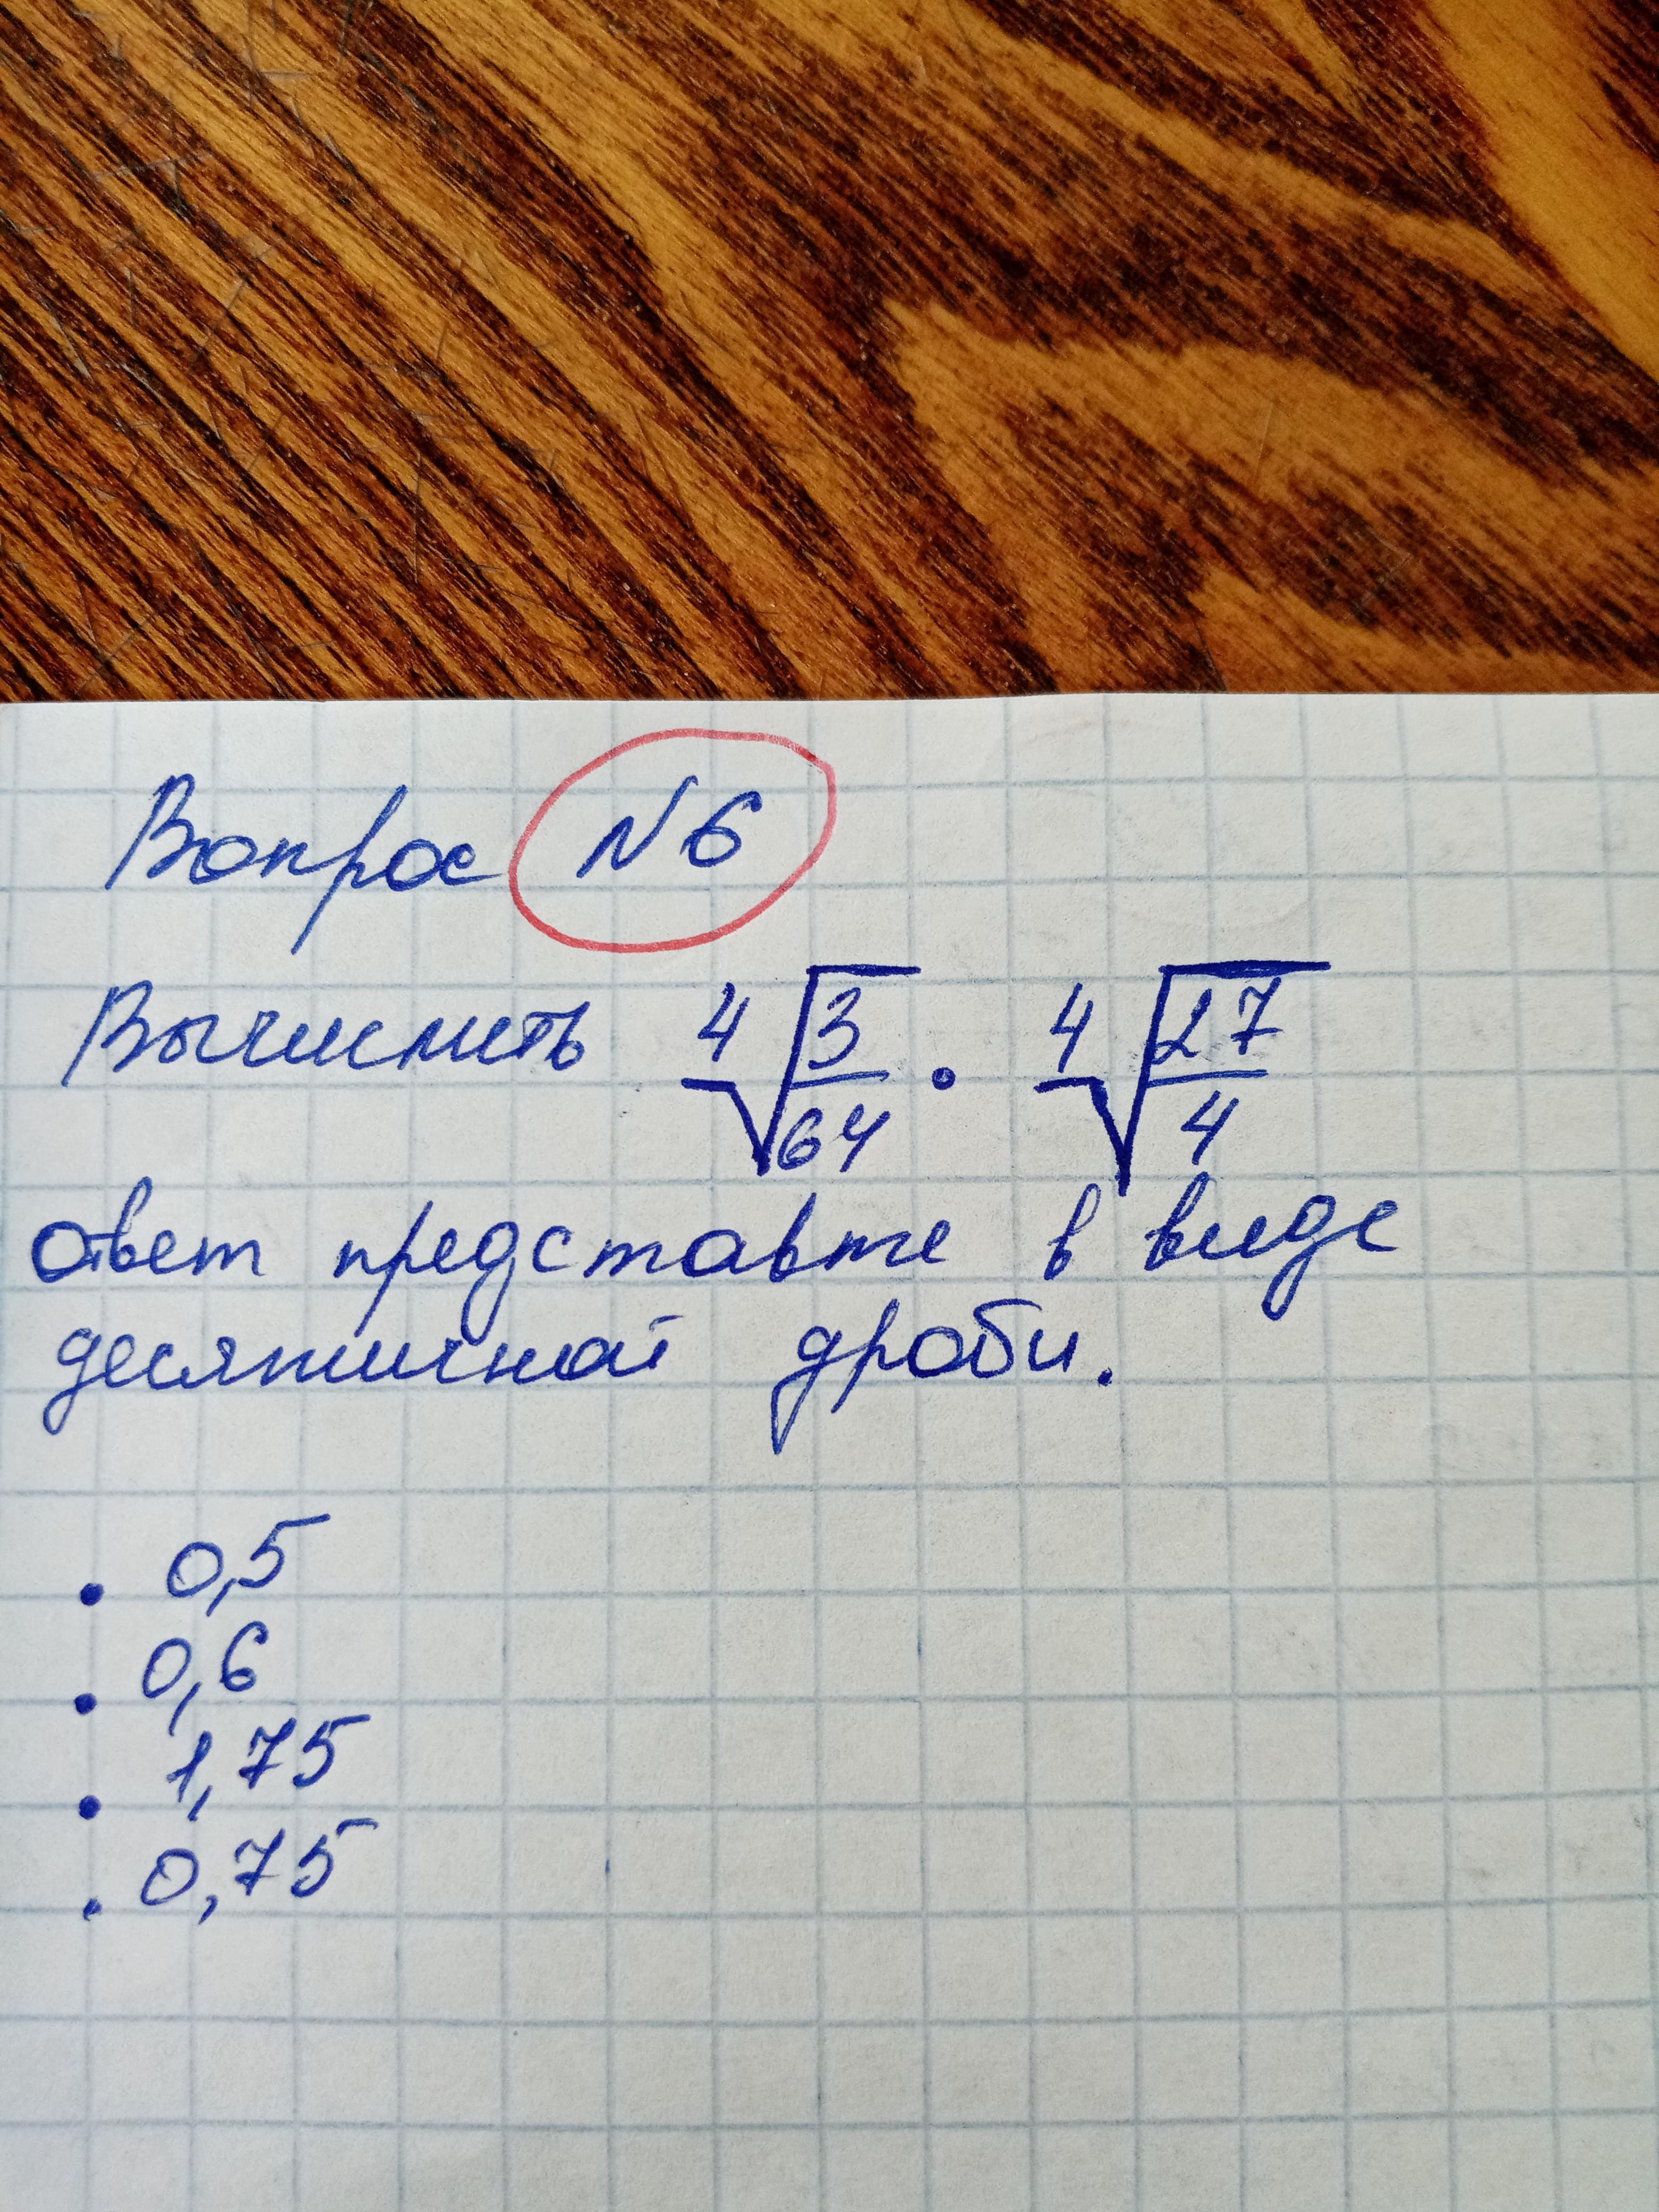 Вопрос N6
Вычислить ⁴√(3/64) · ⁴√(27/4)
ответ представте в виде
десятичной дроби.
. 0,5
. 0,6
. 1,75
. 0,75